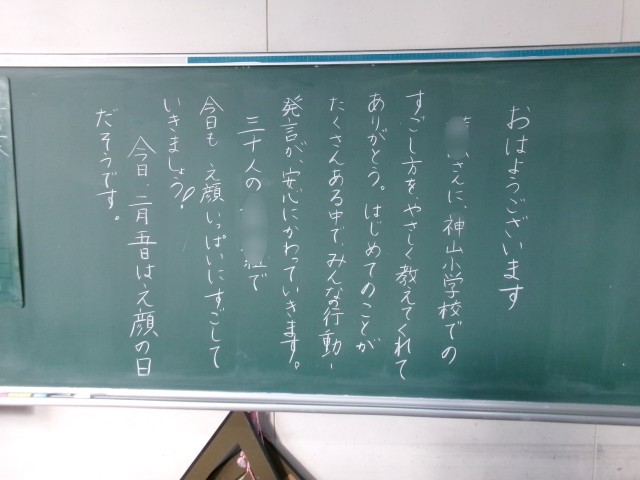 おはようございます
さんに、神山小学校での
すごし方を、やさしく教えてくれて
ありがとう。はじめてのことが
たくさんある中で、みんなの行動・
発言が、安心にかわっていきます。
三十人の 組で
今日も え顔いっぱいにすごして
いきましょう!
今日、二月五日は、え顔の日
だそうです。